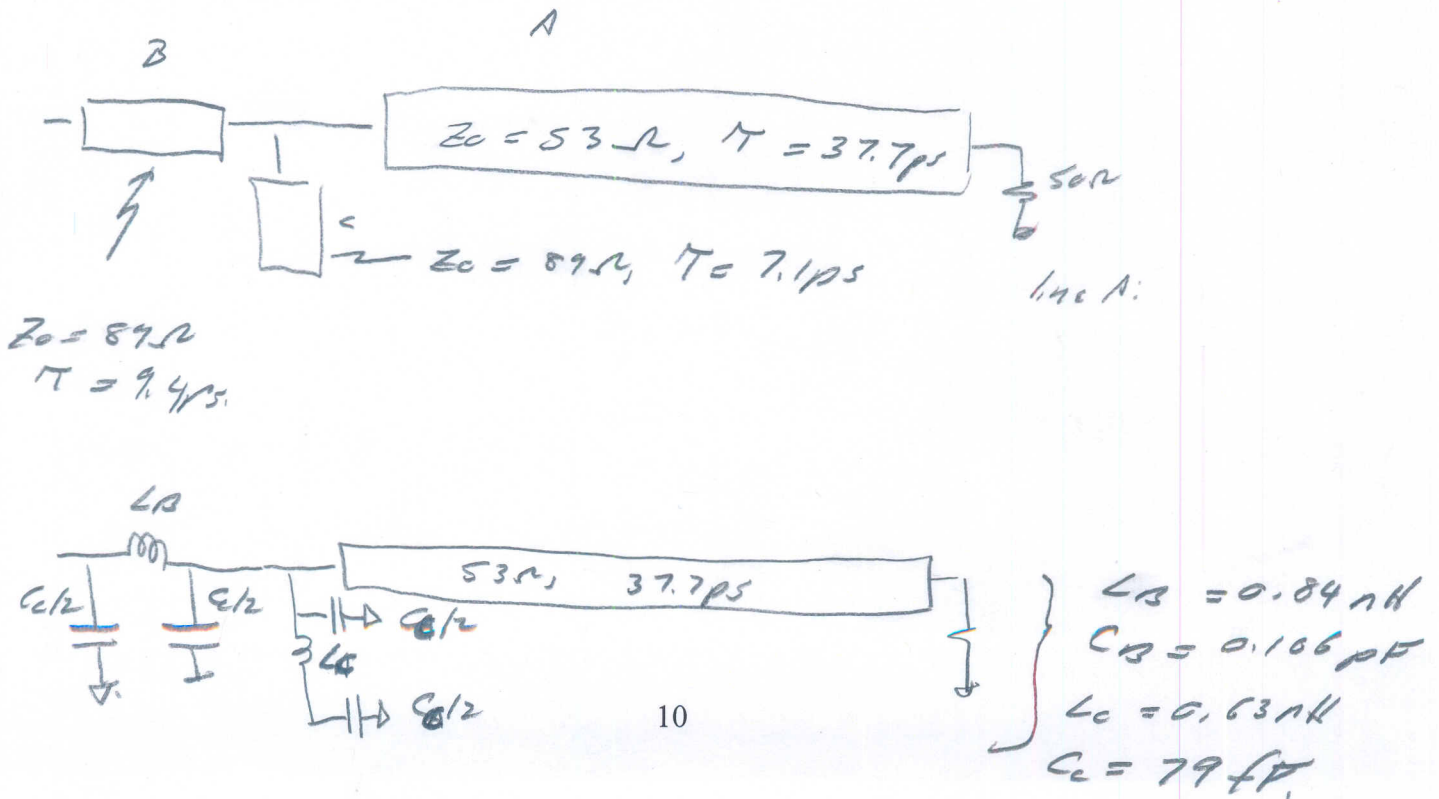 A
B
Z₀ = 53 Ω, τ = 37.7ps
50Ω
C
Z₀ = 89Ω, τ = 7.1ps
line A:
Z₀ = 89Ω
τ = 9.4ps.
LB
53Ω, 37.7ps
Cc/2
C/2
CC/2
LC
CC/2
LB = 0.84 nH
CB = 0.106 pF
Lc = 0.63nH
Cc = 79 fF
10